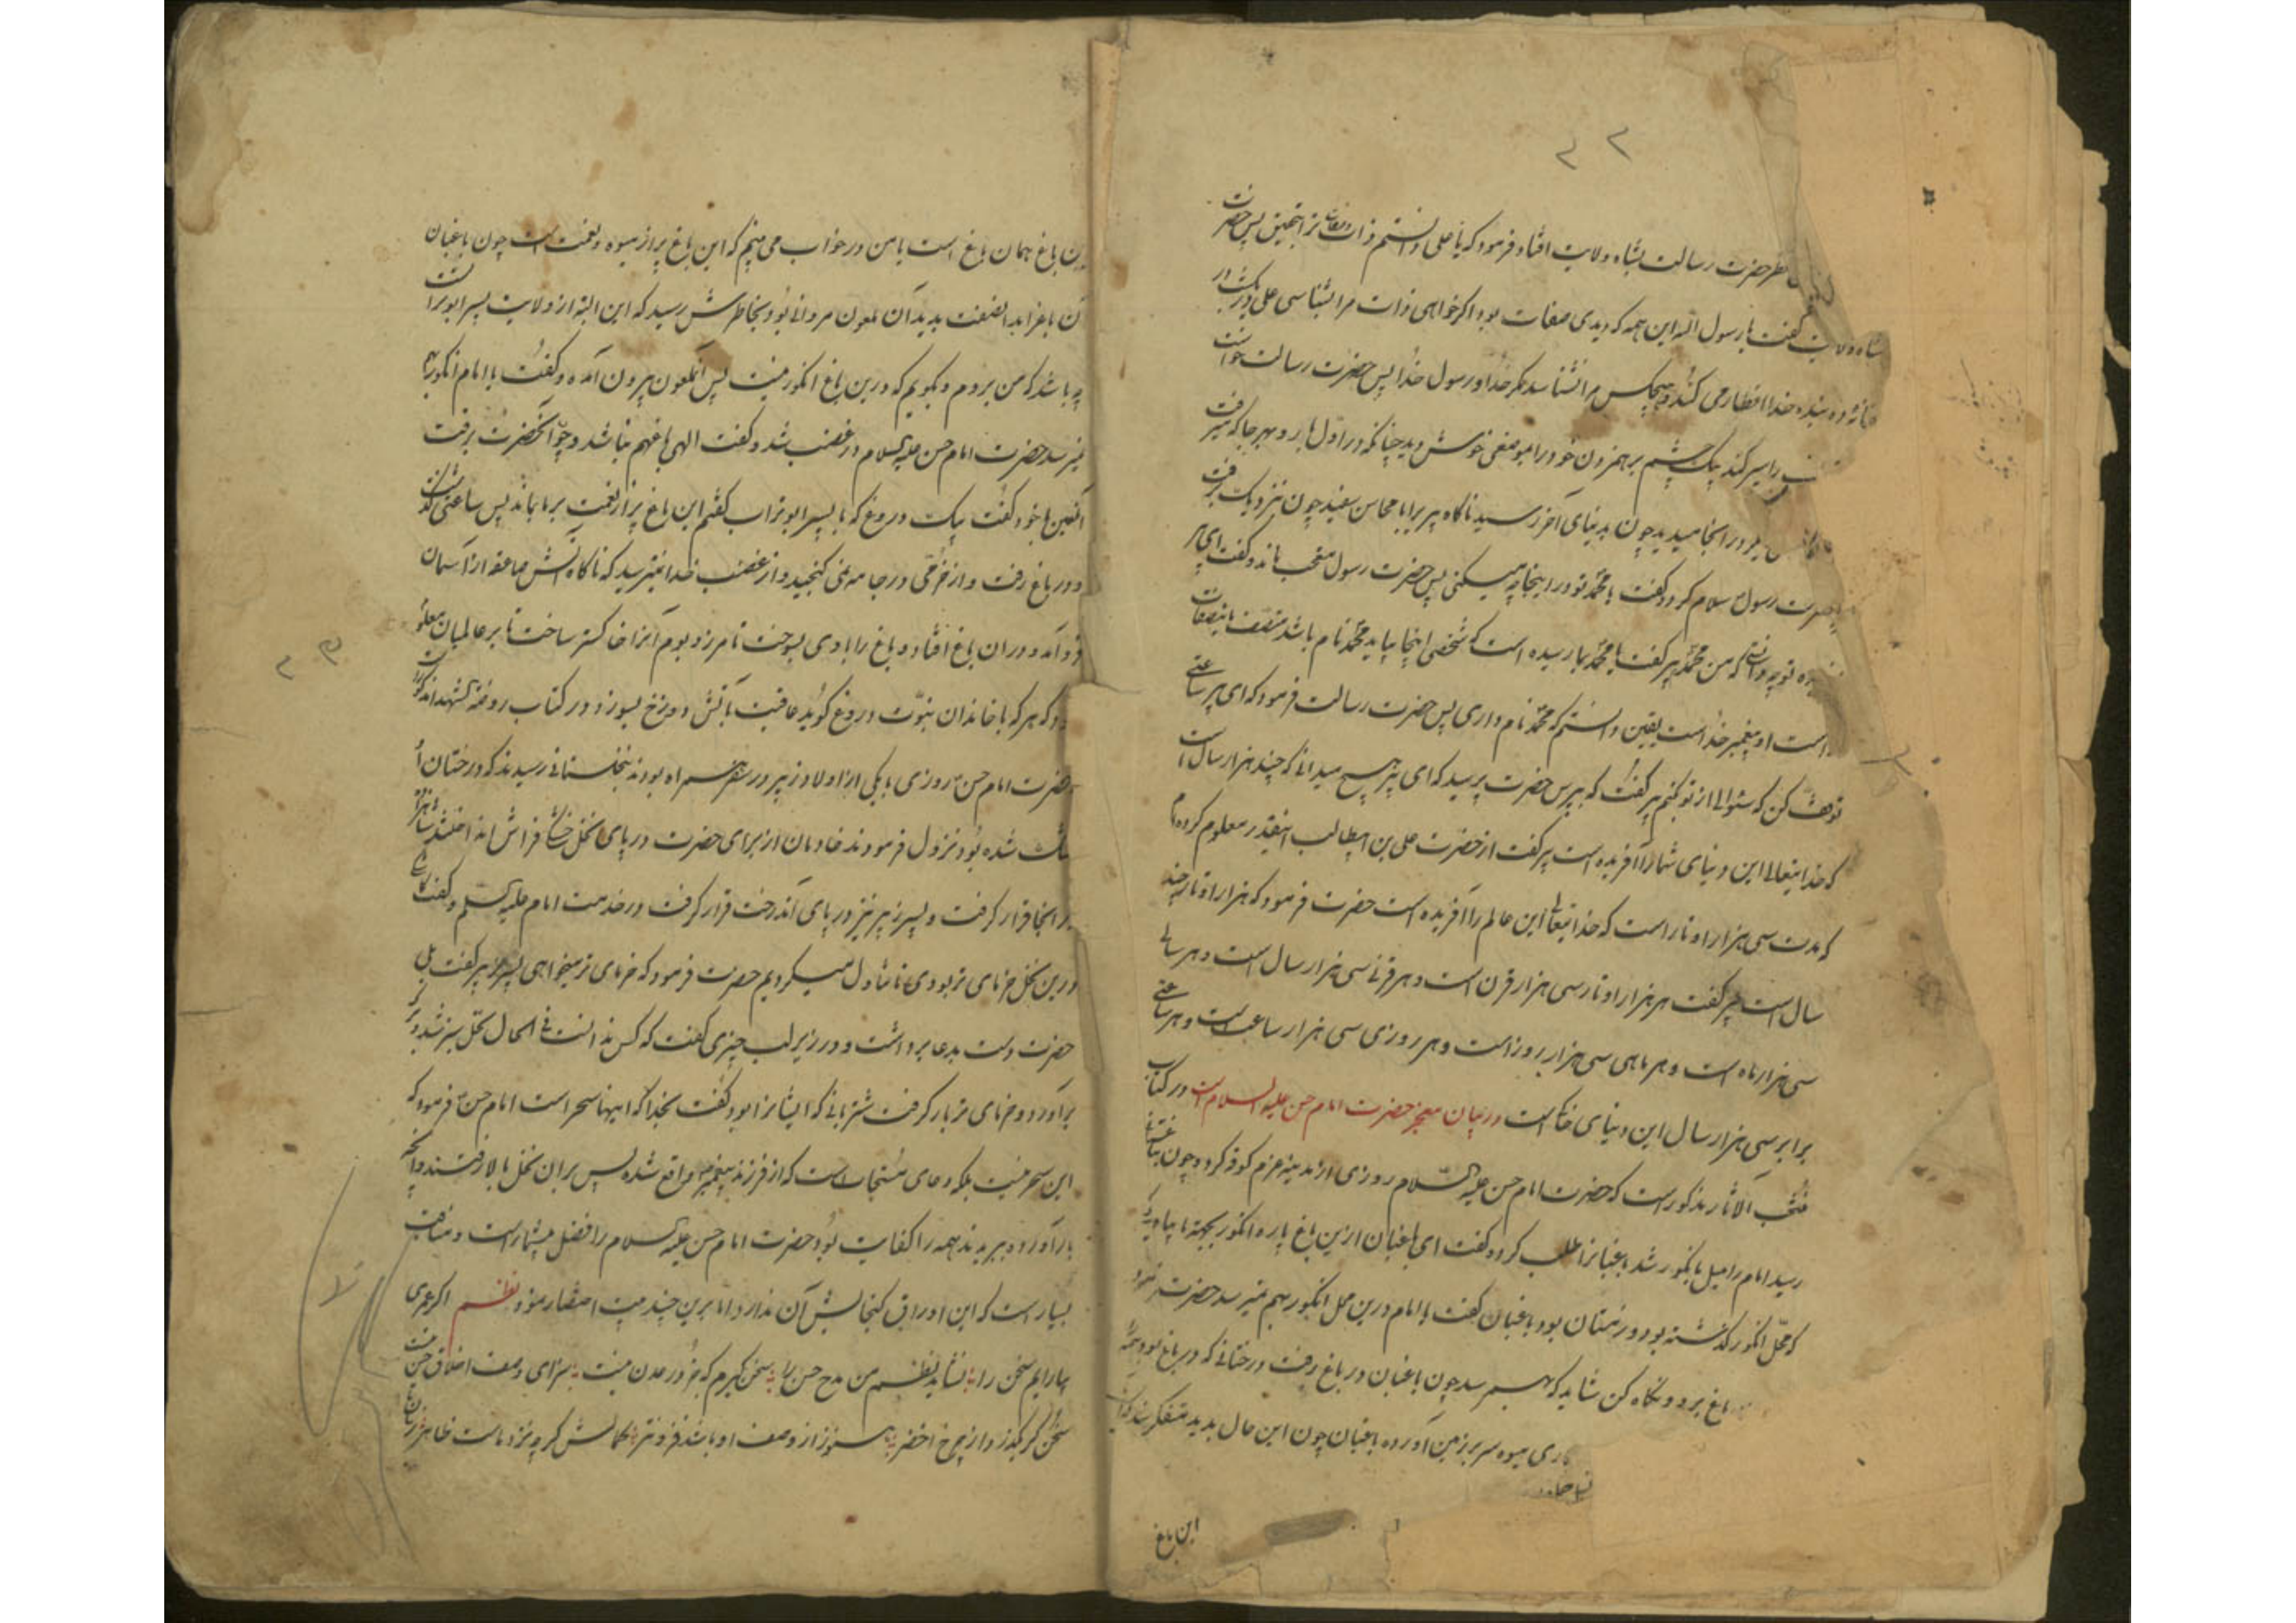 ۲۲
نظر حضرت رسالت بشاه ولایت افتاد فرمود که یا علی دانستم ذات و صفات ترا بتحقیق پس حضرت
شاه ولایت گفت یا رسول الله این همه که دیدی صفات بود اگر خواهی ذات مرا بشناسی علی در یکشب در
خانه ده بنده خدا افطار می کند و هیچکس مرا نشناسد مگر خدا و رسول خدا پس حضرت رسالت خواست
را سیر کند یک چشم برهمزدن خود را بموضعی خوش دید چنانکه در اول بار و بهر جا که میرفت
را در انجا میدید چون بدنیای آخر رسید ناکاه پیر برا با محاسن سفید چون نزدیک رفت
حضرت رسول سلام کرد و گفت یا محمد تو در اینجا چه میکنی پس حضرت رسول متعجب ماند و گفت ای پیر
تو چه دانی که من محمدم پیر گفت یا محمد بما رسیده است که شخصی اینجا بیاید محمد نام باشد متصف باینصفات
است او پیغمبر خداست یقین دانستم که محمد نام داری پس حضرت رسالت فرمود که ای پیر ساعتی
توقف کن که سئوالی از تو کنم پیر گفت که بپرس حضرت پرسید که ای پیر هیچ میدانی که چند هزار سال است
که خدایتعالی این دنیای شما را آفریده است پیر گفت از حضرت علی بن ابیطالب اینقدر معلوم کرده‌ام
که مدت سی هزار اوتار است که خدایتعالی این عالم را آفریده است حضرت فرمود که هزار اوتار چند
سال است پیر گفت هر هزار اوتار سی هزار قرن است و هر قرنی سی هزار سال است و هر سالی
سی هزار ماه است و هر ماهی سی هزار روز است و هر روزی سی هزار ساعت است و هر ساعتی
برابر سی هزار سال این دنیای خاکست در بیان معجز حضرت امام حسن علیه السلام است در کتاب
منتخب الاثار مذکور است که حضرت امام حسن علیه السلام روزی از مدینه عزم کوفه کرد و چون بباغستانی
رسید امام را میل بانگور شد باغبانرا طلب کرد و گفت ای باغبان ازین باغ پاره انگور بجهة ما بیاور
که محل انگور گذشته بود و زمستان بود باغبان گفت یا امام درین محل انگور بهم نمیرسد حضرت فرمود
باغ برو و نگاه کن شاید که بهم رسد چون باغبان در باغ رفت درختانی که در باغ بود همه
میوه سر بر زمین آورده باغبان چون این حال بدید متفکر شد که
این باغ
۲۳
این باغ همان باغ است یا من در خواب می بینم که این باغ پر از میوه و نعمت است چون باغبان
آن باغ را بدانصفت بدید آن ملعون مروانی بود بخاطرش رسید که این البته از ولایت پسر ابو ترا بست
چه باشد که من بروم و بگویم که درین باغ انگور نیست پس آنملعون بیرون آمده و گفت یا امام انگور بهم
نمیرسد حضرت امام حسن علیه السلام در غضب شد و گفت الهی باغ هم نباشد و چو آنحضرت برفت
آنلعین با خود گفت بیک دروغ که با پسر ابوتراب گفتم این باغ پر از نعمت بر ما بماند پس ساعتی گذشت
و در باغ رفت و از خرمی در جامه نمی گنجید و از غضب خدا نمیترسید که ناکاه آتش صاعقه از آسمان
فرود آمد و در ان باغ افتاد و باغ را بادی بسوخت تا مرز و بوم آنرا خاکستر ساخت تا بر عالمیان معلوم
شود که هر که با خاندان نبوت دروغ گوید عاقبت بآتش دوزخ بسوزد و در کتاب روضة الشهدا مذکورست
حضرت امام حسن روزی با یکی از اولاد زبیر در سفر همراه بودند بنخلستانی رسیدند که درختان آن
خشک شده بود نزول فرمودند خادمان از برای حضرت در پای نخل خشکی فراش انداختند شاهزاده
در انجا قرار گرفت و پسر زبیر نیز در پای آندرخت قرار گرفت در خدمت امام علیه السلم و گفت کاشکی
درین نخل خرمای تر بودی تا تناول میکردیم حضرت فرمود که خرمای تر میخواهی پسر زبیر گفت بلی
حضرت دست بدعا برداشت و در زیر لب چیزی گفت که کس ندانست فی الحال نخل سبز شد و برگ
برآورد و خرمای تر بار گرفت شتربانی که ایشانرا بود گفت بخدا که اینها سحر است امام حسن فرمود که
این سحر نیست بلکه دعای مستجاب است که از فرزند پیغمبر واقع شده پس بران نخل بالا رفتند و آنچه
بار آورد و ببریدند همه را کفایت بود حضرت امام حسن علیه السلام را فضل بیشمار است و مناقب
بسیار است که این اوراق گنجایش آن ندارد اما برین چند بیت اختصار نمود نظم اگر عمری
بیارایم سخن را نشاید نظم من مدح حسن را سخن گیرم که جز در عدن نیست سزای وصف اخلاق حسن نیست
سخن گر بگذرد از چرخ اخضر هنوز از وصف او باشد فروتر کمالش گر چه نزد ماست ظاهر